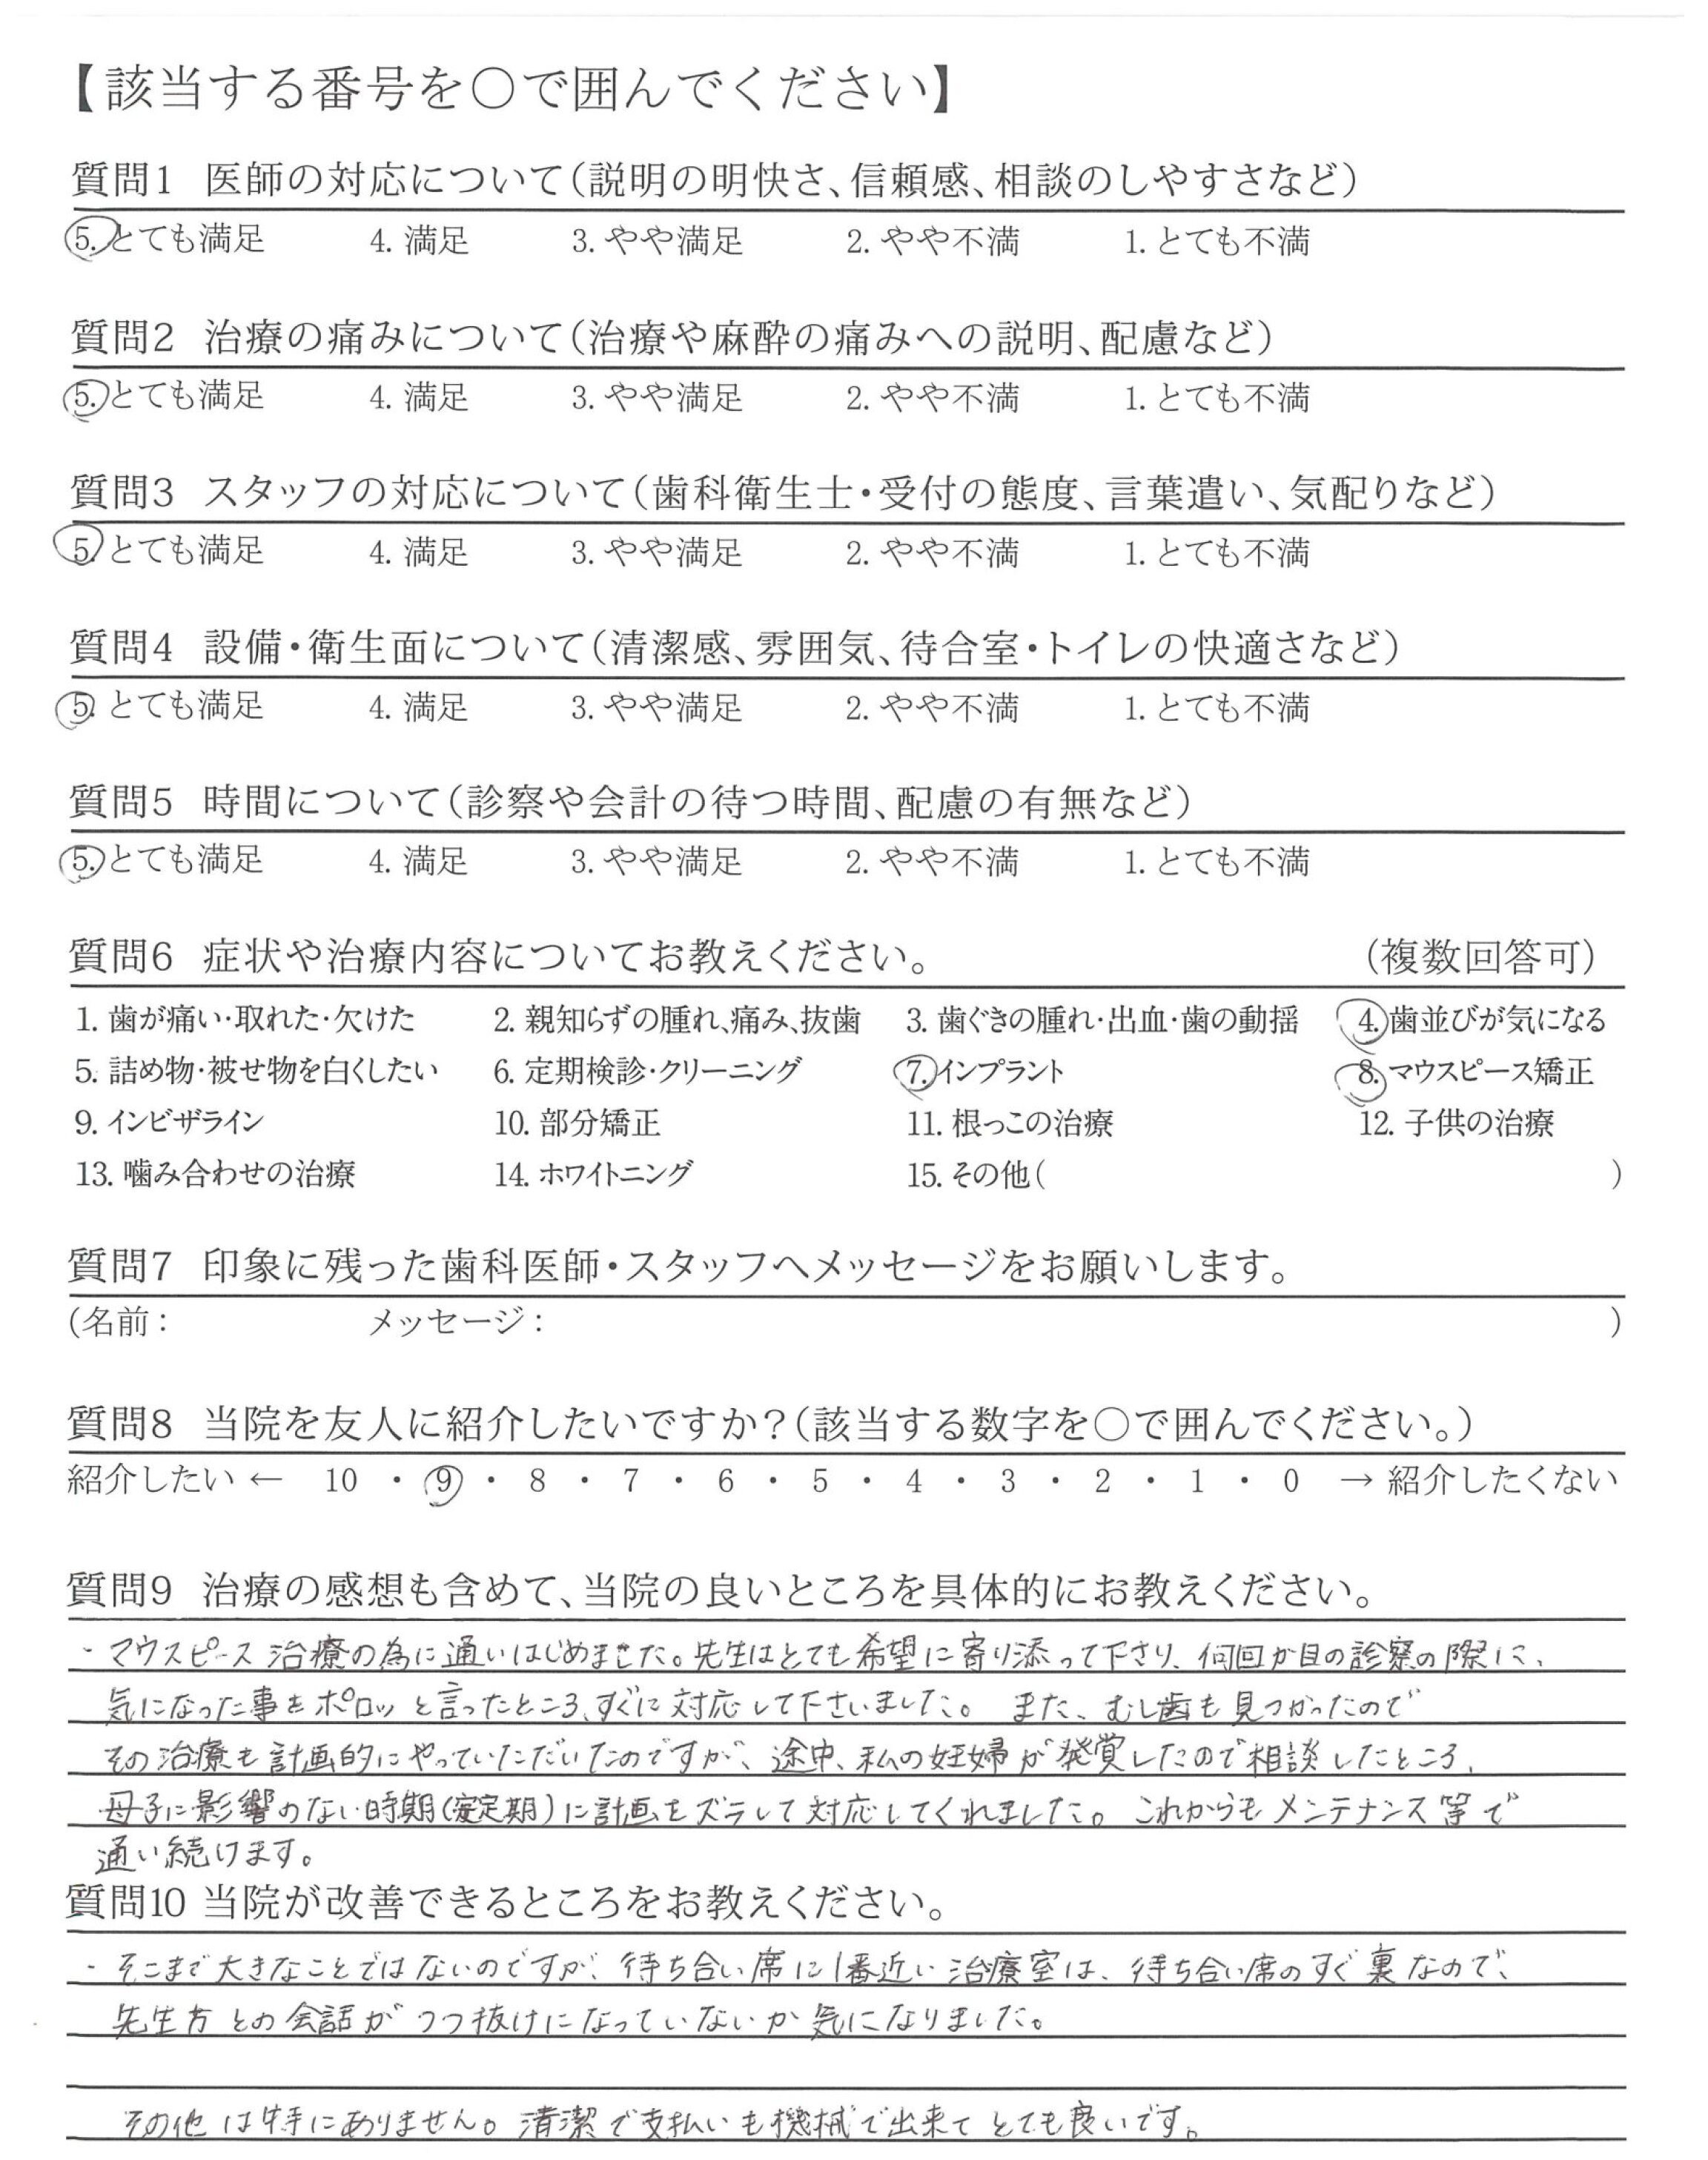 【該当する番号を○で囲んでください】
質問1 医師の対応について(説明の明快さ、信頼感、相談のしやすさなど)
5. とても満足 4. 満足 3. やや満足 2. やや不満 1. とても不満
質問2 治療の痛みについて(治療や麻酔の痛みへの説明、配慮など)
5. とても満足 4. 満足 3. やや満足 2. やや不満 1. とても不満
質問3 スタッフの対応について(歯科衛生士・受付の態度、言葉遣い、気配りなど)
5. とても満足 4. 満足 3. やや満足 2. やや不満 1. とても不満
質問4 設備・衛生面について(清潔感、雰囲気、待合室・トイレの快適さなど)
5. とても満足 4. 満足 3. やや満足 2. やや不満 1. とても不満
質問5 時間について(診察や会計の待つ時間、配慮の有無など)
5. とても満足 4. 満足 3. やや満足 2. やや不満 1. とても不満
質問6 症状や治療内容についてお教えください。 (複数回答可)
1. 歯が痛い・取れた・欠けた 2. 親知らずの腫れ、痛み、抜歯 3. 歯ぐきの腫れ・出血・歯の動揺 4. 歯並びが気になる
5. 詰め物・被せ物を白くしたい 6. 定期検診・クリーニング 7. インプラント 8. マウスピース矯正
9. インビザライン 10. 部分矯正 11. 根っこの治療 12. 子供の治療
13. 噛み合わせの治療 14. ホワイトニング 15. その他( )
質問7 印象に残った歯科医師・スタッフへメッセージをお願いします。
(名前: メッセージ: )
質問8 当院を友人に紹介したいですか?(該当する数字を○で囲んでください。)
紹介したい ← 10 ・ 9 ・ 8 ・ 7 ・ 6 ・ 5 ・ 4 ・ 3 ・ 2 ・ 1 ・ 0 → 紹介したくない
質問9 治療の感想も含めて、当院の良いところを具体的にお教えください。
・マウスピース治療の為に通いはじめました。先生はとても希望に寄り添って下さり、何回か目の診察の際に、
気になった事をポロッと言ったところ、すぐに対応して下さいました。 また、むし歯も見つかったので
その治療も計画的にやっていただいたのですが、途中、私の妊婦が発覚したので相談したところ、
母子に影響のない時期(安定期)に計画をズラして対応してくれました。これからもメンテナンス等で
通い続けます。
質問10 当院が改善できるところをお教えください。
・そこまで大きなことではないのですが、待ち合い席に1番近い治療室は、待ち合い席のすぐ裏なので、
先生方との会話がつつ抜けになっていないか気になりました。
その他は特にありません。清潔で支払いも機械で出来てとても良いです。